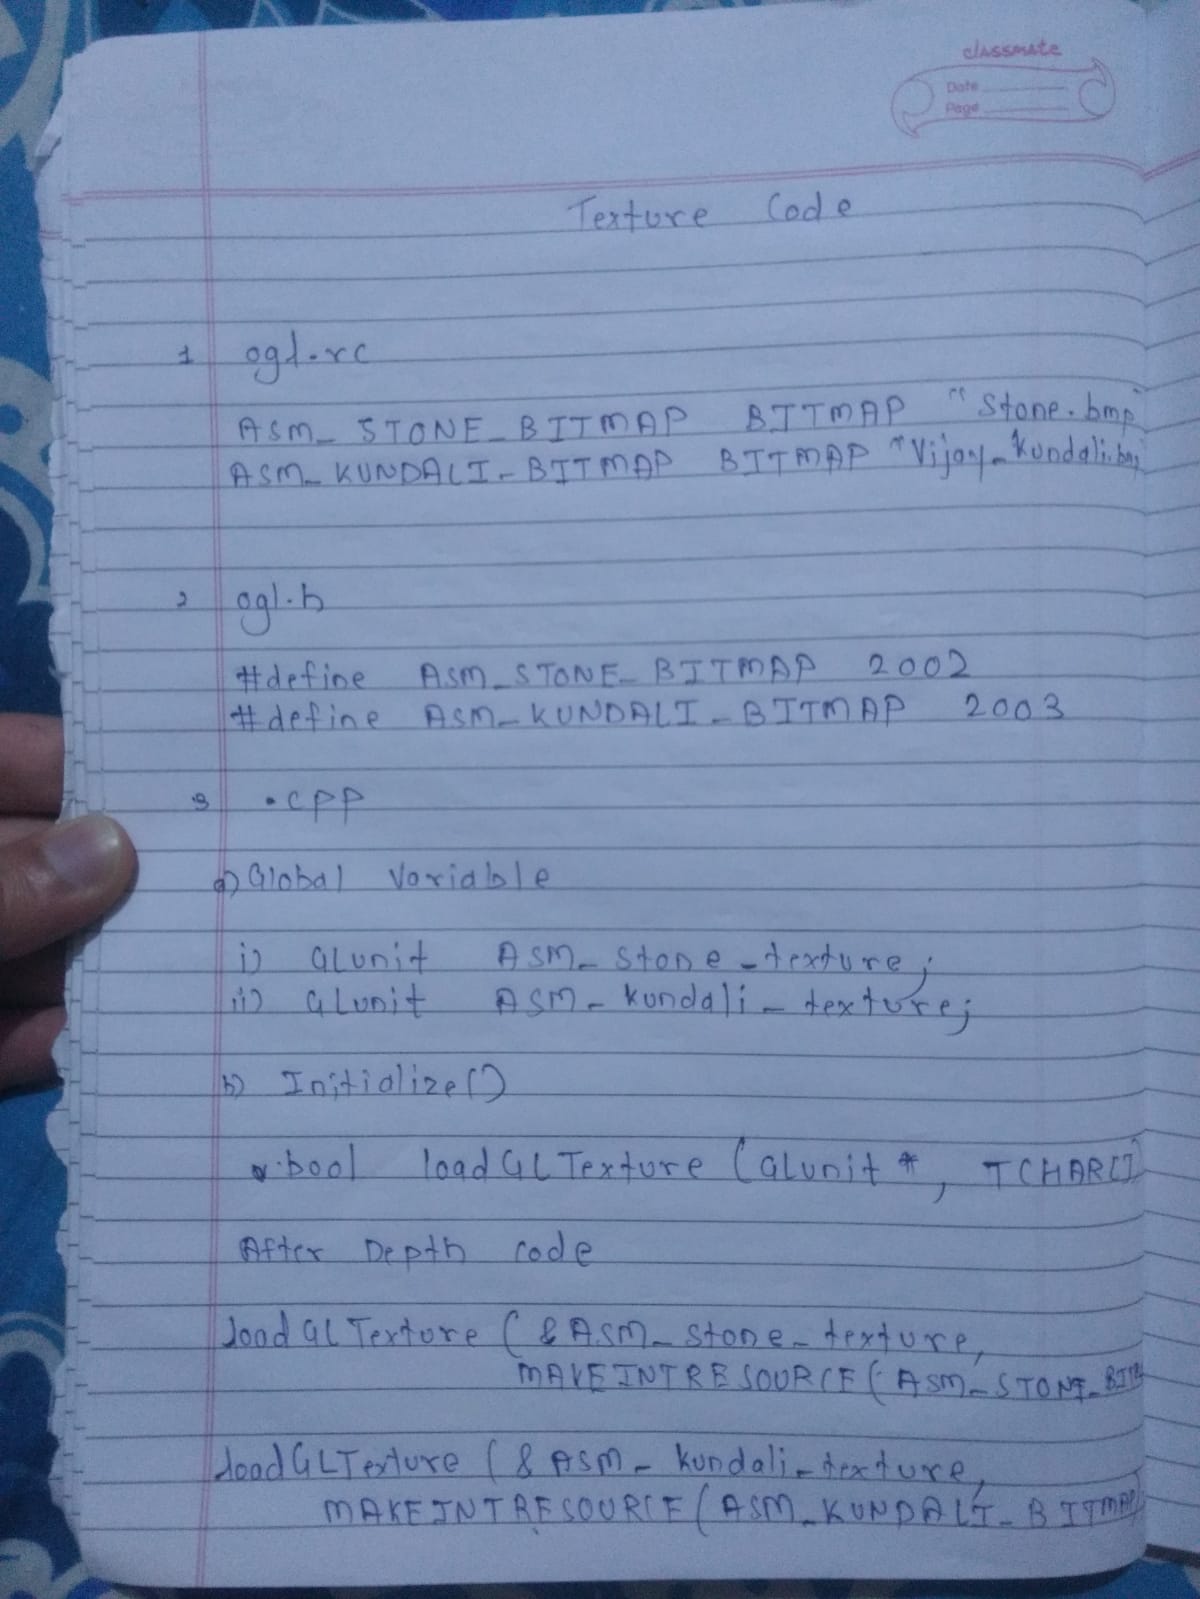 classmate
Date
Page
Texture Code
1 ogl.rc
ASM_STONE_BITMAP BITMAP "Stone.bmp"
ASM_KUNDALI_BITMAP BITMAP "Vijay_Kundali.bm
2 ogl.h
#define ASM_STONE_BITMAP 2002
#define ASM_KUNDALI_BITMAP 2003
3 .cpp
a) Global Variable
i) GLunit ASM_stone_texture;
ii) GLunit ASM_kundali_texture;
b) Initialize()
bool loadGLTexture (GLunit *, TCHAR[]
After Depth code
loadGLTexture (&ASM_stone_texture,
MAKEINTRESOURCE(ASM_STONE_BITM
loadGLTexture (&ASM_kundali_texture,
MAKEINTRESOURCE(ASM_KUNDALI_BITMAP)